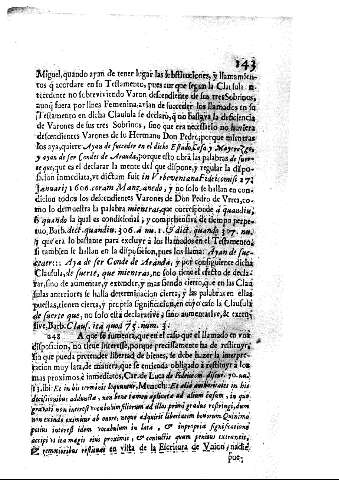 143
Miguel, quando ayan de tener lugar las substituciones, y llamamien-
tos q̃ acordare en su Testamento, pues
necedente no sobreviviendo Varon descendiente de sus tres Sobrinos,
aunq̃ fuera por linea Femenina, avian de suceder los llamados en su
Testamento en dicha Clausula se declarò, q̃ no bastava la deficiencia
de Varones de sus tres Sobrinos, sino que era necessario no huviera
descendientes Varones de su Hermano Don Pedro, porque mientras
los aya, quiere Ayan de suceder en el dicho Estado, Casa, y Mayorazgo,
y ayan de ser Condes de Aranda; porque esto obrà las palabras de suer-
te que, que es el declarar la mente del que dispone, y regular la dispo-
sicion inmediata, ut dictam suit in
Ianuarij 1606. coram Manzanedo, y no solo se hallan en con-
dicion todos los descendientes Varones de Don Pedro de Vrrea, co-
mo lo demuestra la palabra mientras, que corresponde à quandiu,
ò quando la qual es condicional, y comprehensiva de tiempo perpe-
tuo, Barb. dict. quandiu. 306. à nu. 1. & dict. quando 307. nu.
y que era lo bastante para excluir à los llamados en el Testamento,
si tambien se hallan en la disposicion, pues los llama: Ayan de suc-
Aya de ser Conde de Aranda, y por consiguiente dicha
Clausula, de suerte, que mientras, no solo tiene el efecto de decla-
rar, sino de aumentar, y extender, y mas siendo cierto, que en las Clau-
sulas anteriores se halla determinacion cierta, y las palabras en ellas
puestas, sienten cierta, y propria significacion, en cuyo caso la Clausula
de suerte que, no solo està declarativa, sino aumentativa, & exten-
sive, Barb. Claus. ita quod 75. num. 3.
248 A que se aumenta, que en el caso que el llamado en una
disposicion, no tiene interesse, porque precissamente ha de restituir,
sin que pueda pretender libertad de bienes, se debe hazer la interpre-
tacion muy lata de manera, que se entienda obligado à restituir à los
mas proximos è inmediatos, Car. de Luca de Fideicom. discur. 70. nu.
13. ibi: Et in his terminis
decisionibus adducta, non bene tamen aplicata ad alium casum, in quo
gravati non interest vocabulum filiorum ad illos primi gradus restringi, dum
non exinde eximitur ab onere, neque adquirit libertatem bonorum. Quinimo
potius interest idem vocabulum in lata, & impropria significatione
accipi vt ita magis eius proximi, & coniunctis quam penitus extraneis,
& remotioribus restituat en vista de la Escritura de Vnion, nadie
pue-